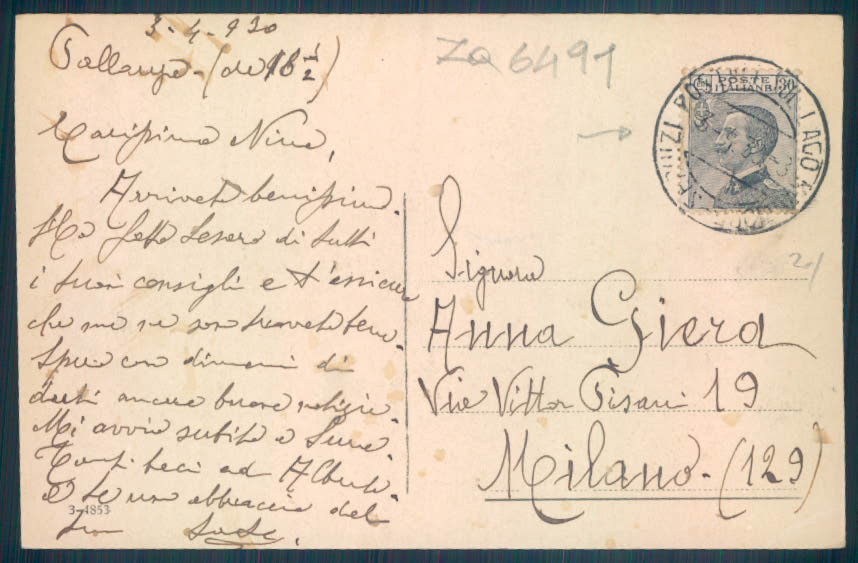 3-4-930
Pallanza - (ore 18 ½)
Carissima Nina,
Arrivato benissimo.
Ho fatto tesoro di tutti
i suoi consigli e t'assicuro
che me ne son trovato bene.
Spero con domani di
darti ancora buone notizie.
Mi avvio subito a
Tanti baci ad Alberto.
E a te un abbraccio dal
tuo
3-4853
ZQ 6491
POSTE ITALIANE
30
SERVIZI POSTALI SUL LAGO M
Signora
Anna Giera
Via Vittor Pisani 19
Milano - (129)